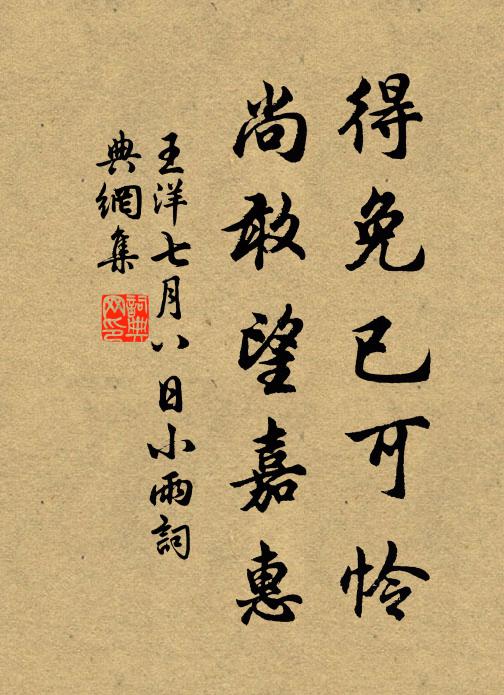 得免已可怜
尚敢望嘉惠
王洋七月八日小雨詞
典網集
詞典网印